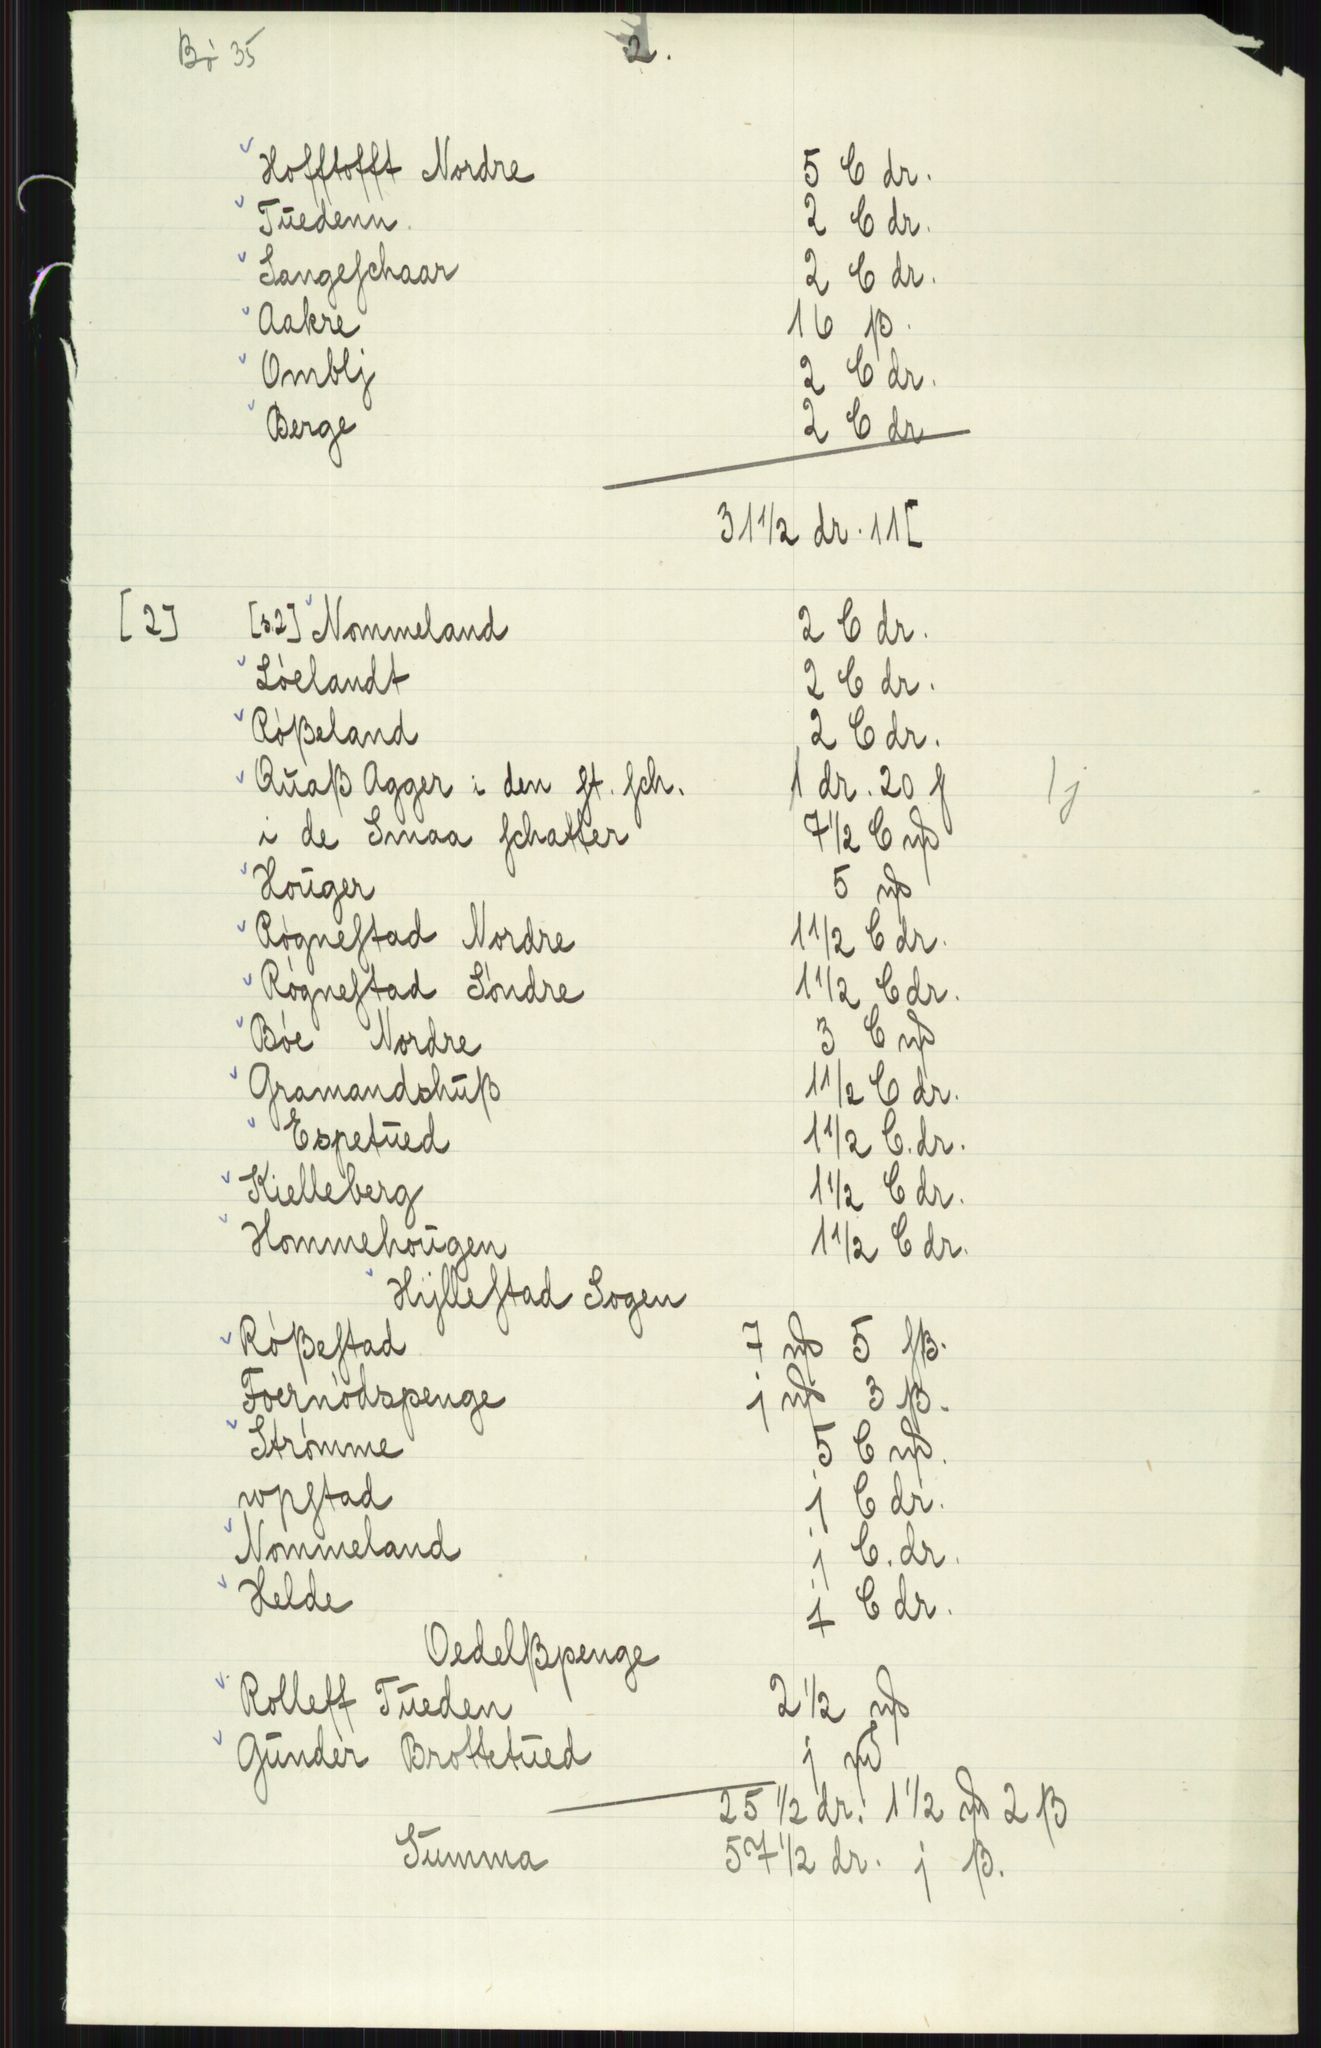 Bò 35
2.
Hofftofft Nordre 5 C dr.
Tŭedenn. 2 C dr.
Langeschaar 2 C dr.
Aakre 16 β.
Omblj 2 C dr.
Berge 2 C dr
31 1/2 dr. 11[
[2] [s.2] Nommeland 2 C dr.
Lóelandt 2 C dr.
Róßeland 2 C dr.
Qŭaß Agger i den st. sch. 1 dr. 20 f
i de Smaa schatter 7 1/2 C
Hoŭger 5
Rógnestad Nordre 1 1/2 C dr.
Rógnestad Sóndre 1 1/2 C dr.
Bóe Nordre 3 C
Gramandshŭß 1 1/2 C dr.
Espetŭed 1 1/2 C. dr.
Kielleberg 1 1/2 C dr.
Hommehoŭgen 1 1/2 C dr.
Hÿllestad Sogen
Róßestad 7 5 sβ.
Foernódspenge j 3 β.
Strómme 5 C
wpstad j C dr.
Nommeland j C. dr.
Helde 1 C dr.
Oedelßpenge
Rolleff Tŭeden 2 1/2
Gŭnder Brottetŭed j
25 1/2 dr. 1 1/2 2 β
Sŭmma 57 1/2 dr. j β.